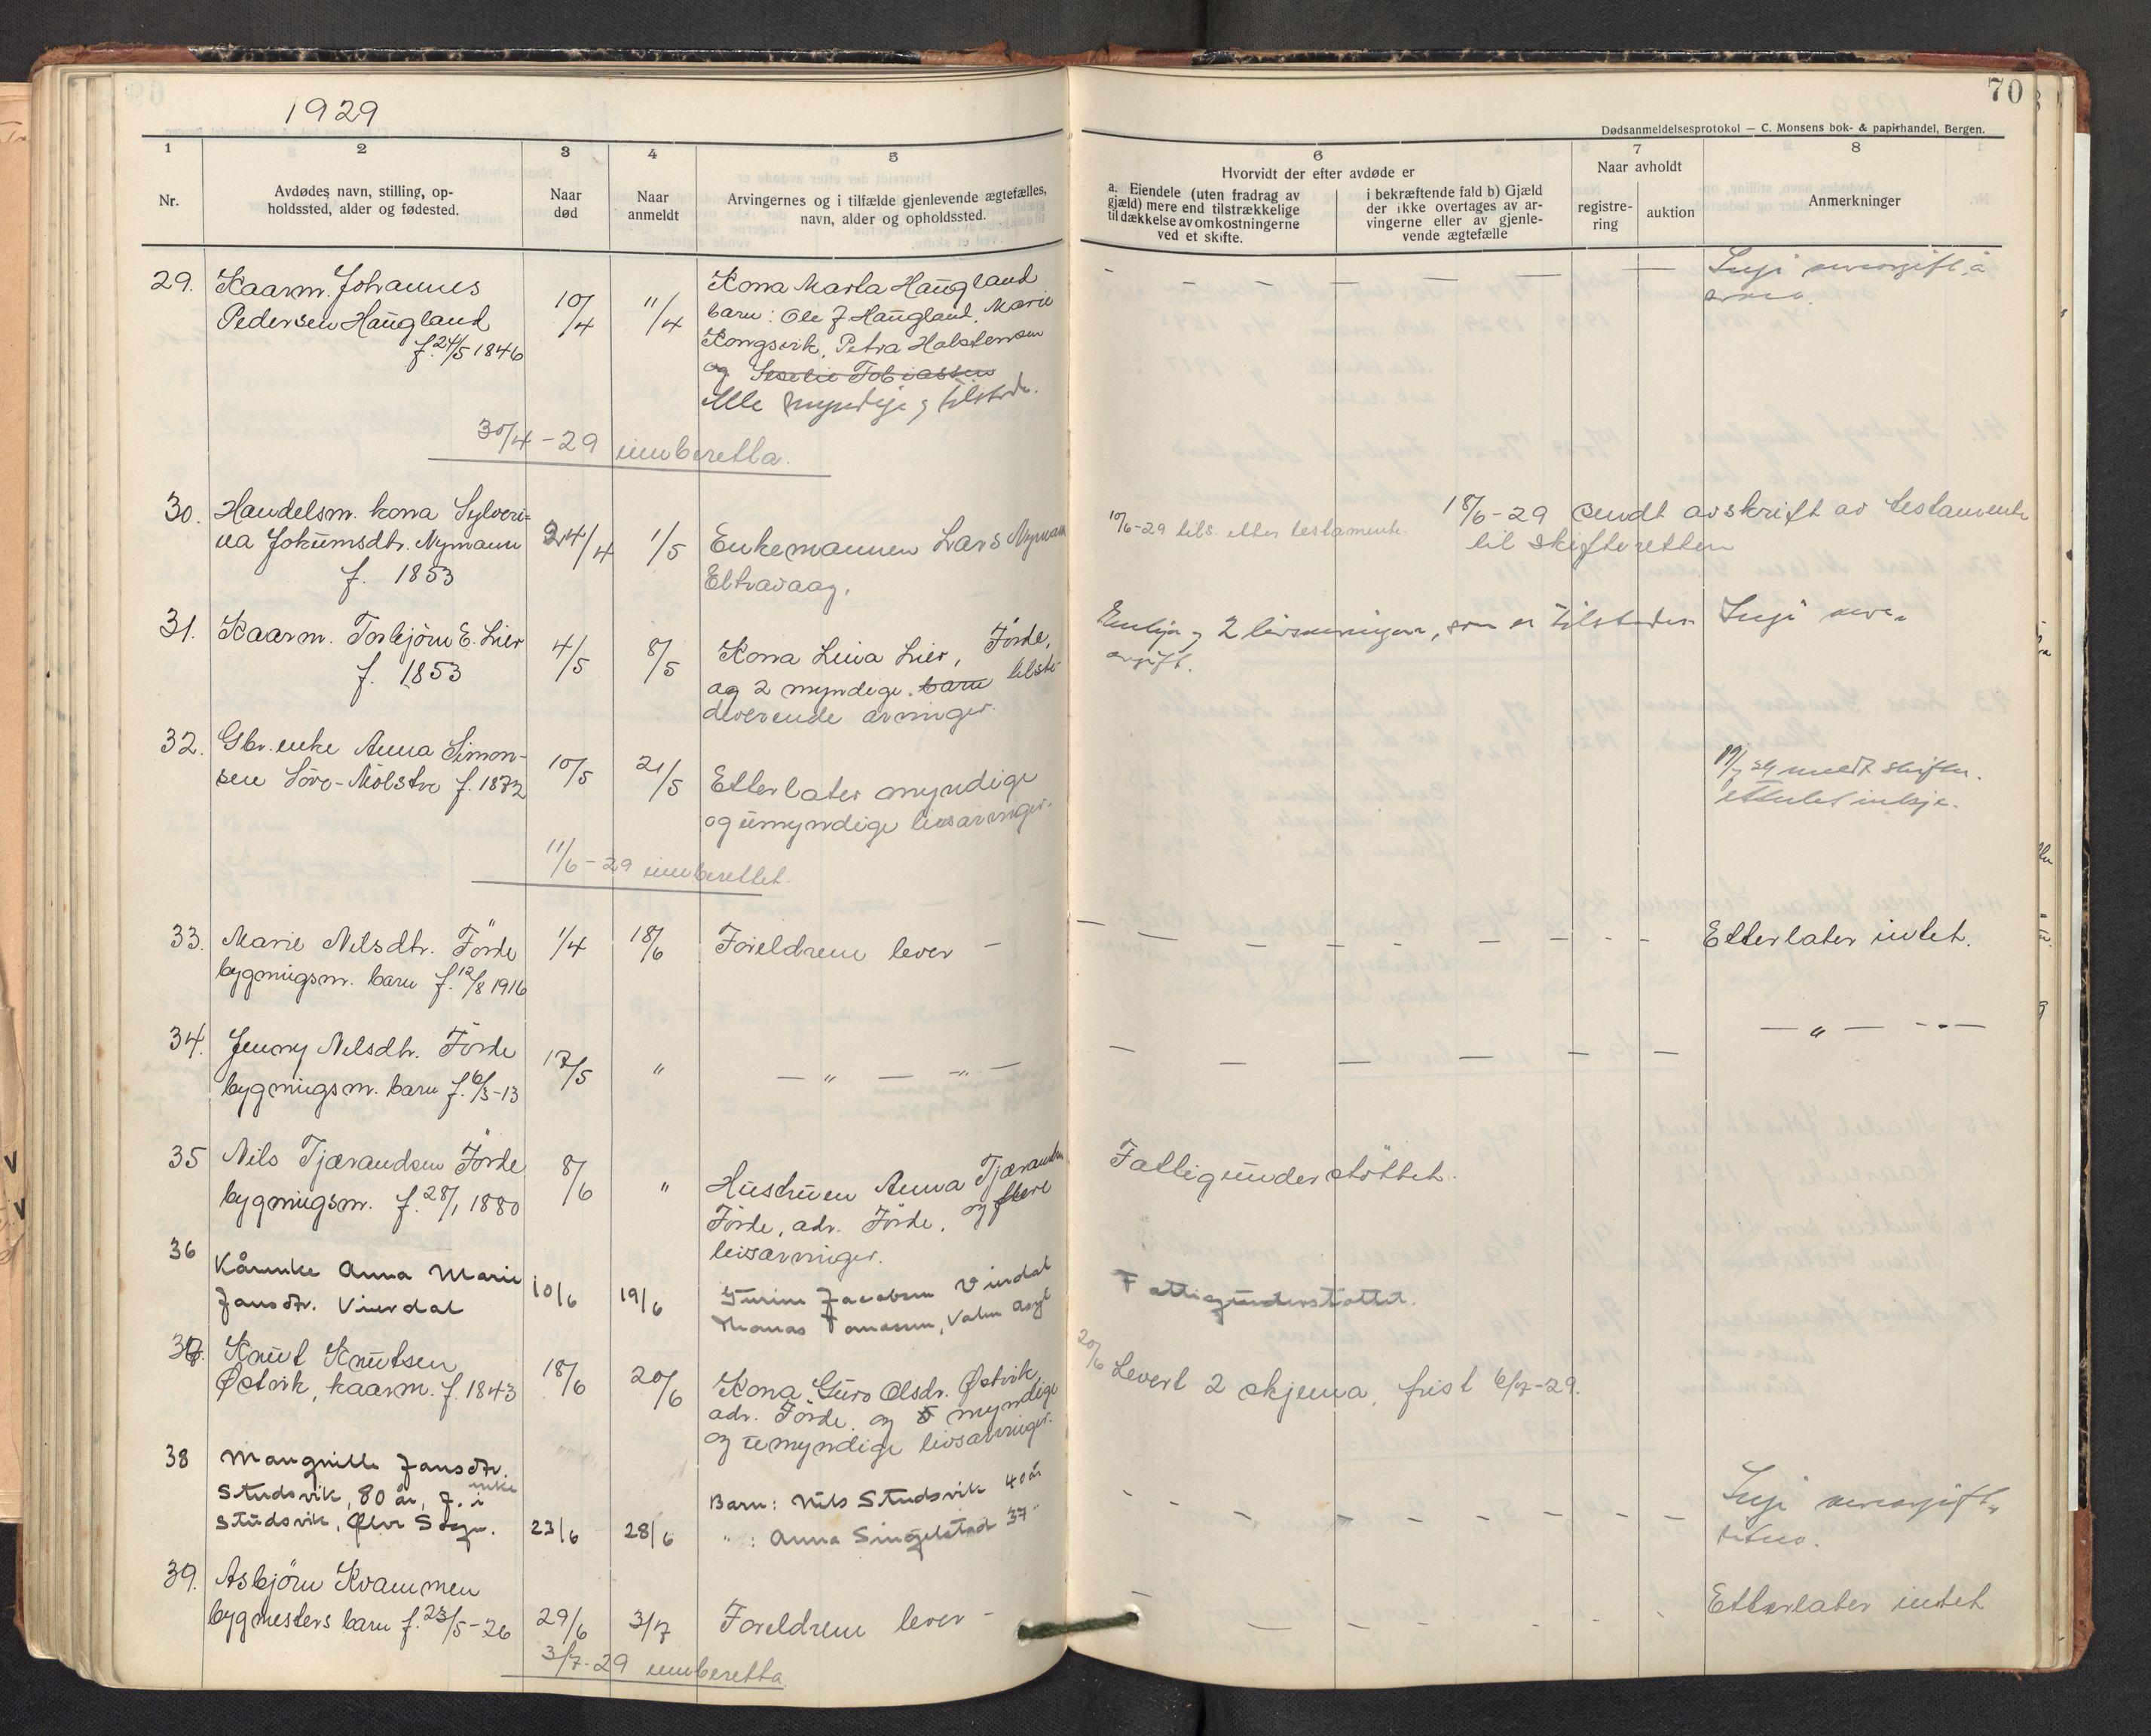 1929
70
Dødsanmeldelsesprotokol — C. Monsens bok- & papirhandel, Bergen.
1
2
3
4
5
6
7
8
Nr.
Avdødes navn, stilling, op-
holdssted, alder og fødested.
Naar
død
Naar
anmeldt
Arvingernes og i tilfælde gjenlevende ægtefælles,
navn, alder og opholdssted.
Hvorvidt der efter avdøde er
a. Eiendele (uten fradrag av
gjæld) mere end tilstrækkelige
til dækkelse av omkostningerne
ved et skifte.
i bekræftende fald b) Gjæld
der ikke overtages av ar-
vingerne eller av gjenle-
vende ægtefælle
Naar avholdt
registre-
ring
auktion
Anmerkninger
29. Kaarm. Johannes
Pedersen Haugland
f. 24/5 1846
10/4
11/4
Kona Marta Haugland
barn: Ole J Haugland, Marie
Kongsvik, Petra Halstensen
og Seselie Tobiassen
Alle myndige og tilstede.
Ingi arveavgift å
30/4-29 innberetta.
30. Handelsm. kona Sylveri-
na Jokumsdtr. Nymann
f. 1853
24/4
1/5
Enkemannen Lars Nymann
Eltravaag.
10/6-29 tils. etter testamente
18/6-29 sendt avskrift av testamente
til skifteretten
31. Kaarm. Torbjörn E. Lier
f. 1853
4/5
8/5
Kona Lina Lier, Förde,
og 2 myndige barn tilste-
deverende arvinger.
Enkja og 2 livsarvingar, som er tilstades
Ingi arve-
avgift.
32. Gbr. enke Anna Simon-
sen Söre-Mölstre f. 1872
10/5
21/5
Etterlater myndige
og umyndige livsarvinger.
19/7 29 meldt skifter.
etterlet inkje.
11/6-29 innberettet.
33. Marie Nilsdtr. Förde
bygningsm. barn f. 12/8 1916
1/4
18/6
Foreldrene lever —
Etterlater intet.
34. Jenny Nilsdtr. Förde
bygningsm. barn f. 6/3-13
17/5
"
— " — — " —
— " — - " —
35 Nils Tjærandsen Förde
bygningsm. f. 28/1 1880
8/6
"
Hustruen Anna Tjærandsen
Förde, adr. Förde. og flere
livsarvinger.
Fattigunderstöttet.
36
Kårenke Anna Marie
Jansdtr. Vindal
10/6
19/6
Gurine Jacobsen Vindal
Thomas Tomassen, Valen Asyl
Fattigunderstøttet.
37. Knut Knutsen
Østvik, kaarm. f. 1843
18/6
20/6
Kona Guro Olsdr. Østvik
adr. Förde. og 5 myndige
og umyndige livsarvinger.
20/6
Levert 2 skjema, frist 6/7-29.
38 Mangnille Jansdtr.
enke
Studsvik, 80 år, f. i
Studsvik, Ølve Sogn.
23/6
28/6
Barn: Nils Studsvik 40 år
" : Anna Singelstad 37 "
Ingi arveavgift
39. Asbjörn Kvammen
bygmesters barn f. 23/5-26
29/6
3/7
Foreldrene lever —
Etterlater intet
3/7-29 innberetta.